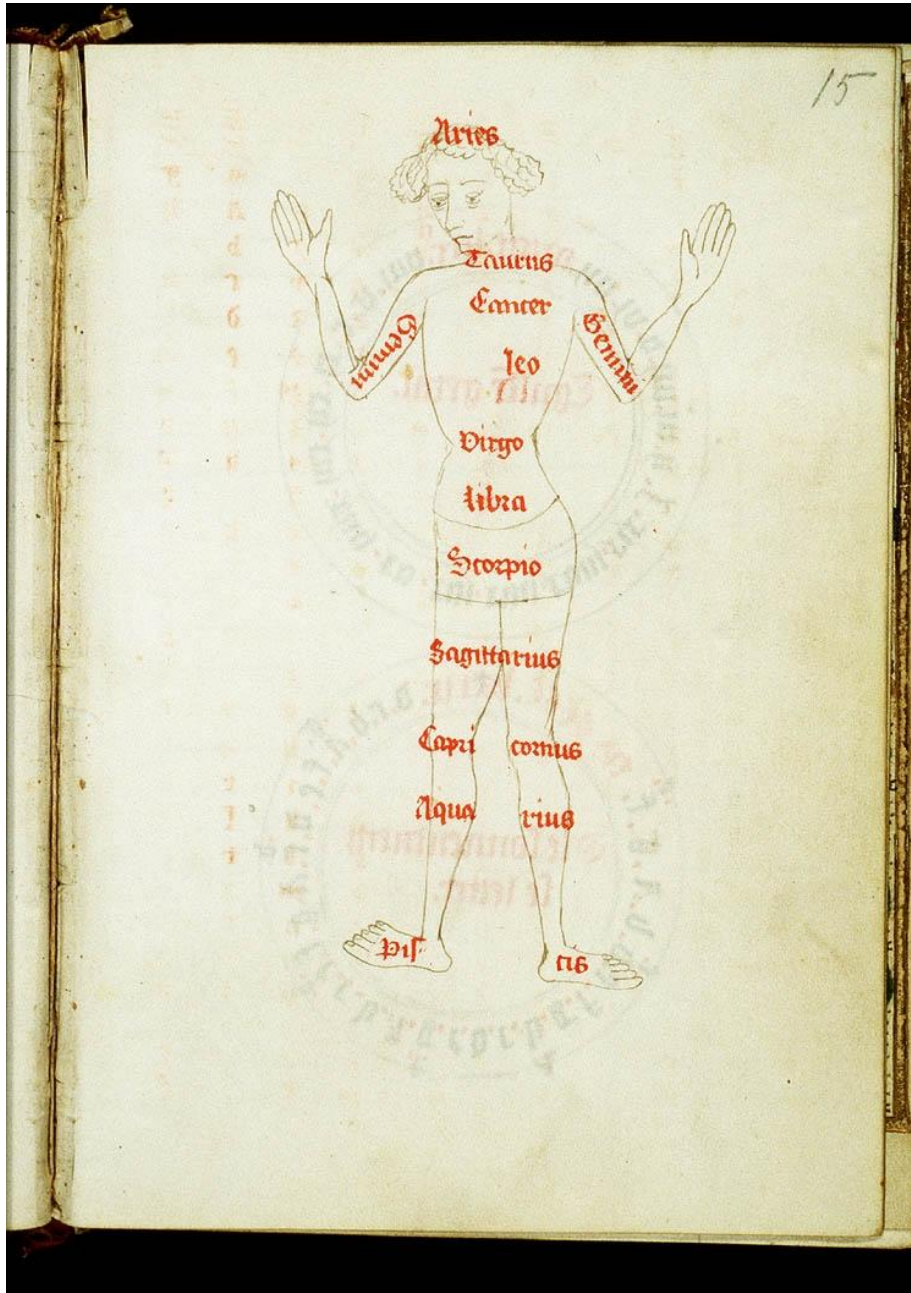 15
Aries
Taurus
Cancer
Gemini Gemini
leo
Virgo
libra
Scorpio
Sagittarius
Capri cornus
Aqua rius
Pis cis